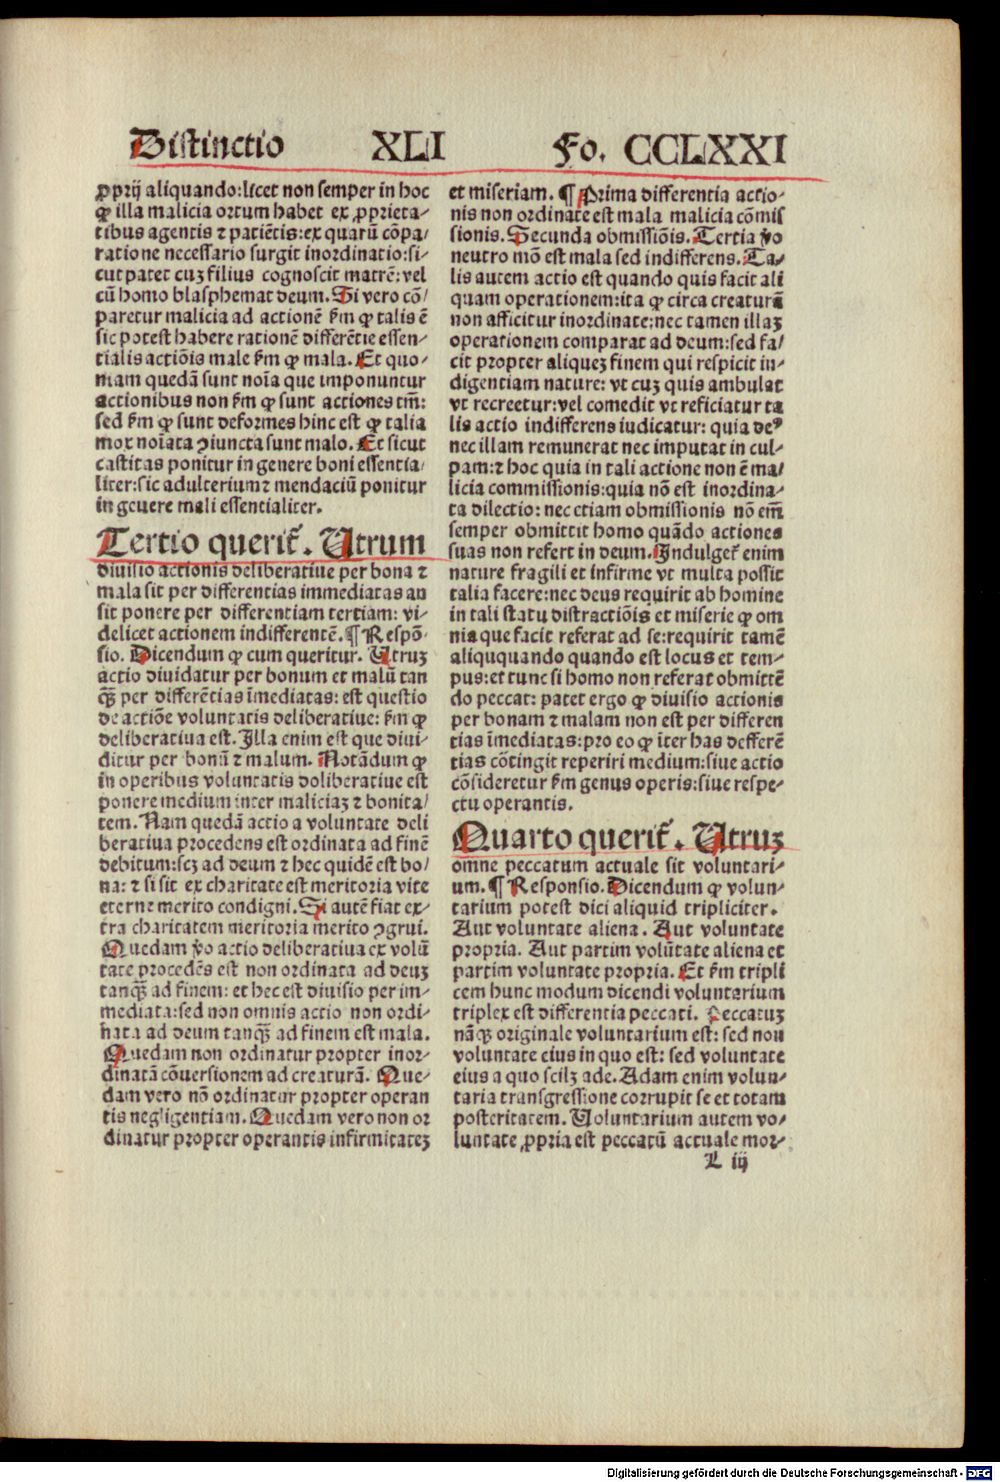 Distinctio XLI Fo. CCLXXI
ꝓprij aliquando:licet non semper in hoc
ꝙ illa malicia ortum habet ex ꝓprieta⸗
tibus agentis ⁊ patiẽtis:ex quarũ cõpa/
ratione necessario surgit inordinatio:si⸗
cut patet cuȝ filius cognoscit matrẽ:vel
cũ homo blasphemat deum. Si vero cõ/
paretur malicia ad actionẽ ẜm ꝙ talis ẽ
sic potest habere rationẽ differẽtie essen⸗
tialis actiõis male ẜm ꝙ mala. Et quo⸗
niam quedã sunt noĩa que imponuntur
actionibus non ẜm ꝙ sunt actiones tm̃:
sed ẜm ꝙ sunt deformes hinc est ꝙ talia
mox noĩata ꝯiuncta sunt malo. Et sicut
castitas ponitur in genere boni essentia/
liter:sic adulterium ⁊ mendaciũ ponitur
in geuere mali essentialiter.
Tertio querit̃. Utrum
diuisio actionis deliberatiue per bona ⁊
mala sit per differentias immediatas an
sit ponere per differentiam tertiam: vi⸗
delicet actionem indifferentẽ. ¶ Respõ⸗
sio. Dicendum ꝙ cum queritur. Utruȝ
actio diuidatur per bonum et malũ tan
ꝙ̃ per differẽtias ĩmediatas: est questio
de actiõe voluntatis deliberatiue: ẜm ꝙ
deliberatiua est. Illa enim est que diui⸗
ditur per bonũ ⁊ malum. Notãdum ꝙ
in operibus voluntatis doliberatiue est
ponere medium inter maliciaȝ ⁊ bonita/
tem. Nam quedã actio a voluntate deli
beratiua procedens est ordinata ad finẽ
debitum:scȝ ad deum ⁊ hec quidẽ est bo/
na: ⁊ si sit ex charitate est meritoria vite
eterne merito condigni. Si autẽ fiat ex⸗
tra charitatem meritoria merito ꝯgrui.
Quedam ṽo actio deliberatiua ex volũ
tate procedẽs est non ordinata ad deuȝ
tanꝙ̃ ad finem: et hec est diuisio per im⸗
mediata:sed non omnis actio non ordi⸗
nata ad deum tanꝙ̃ ad finem est mala.
Quedam non ordinatur propter inor⸗
dinatã cõuersionem ad creaturã. Que⸗
dam vero nõ ordinatur propter operan
tis negligentiam. Quedam vero non or
dinatur propter operantis infirmitateȝ
et miseriam. ¶ Prima differentia actio⸗
nis non ordinate est mala malicia cõmis
sionis. Secunda obmissiõis. Tertia ṽo
neutro mõ est mala sed indifferens. Ta⸗
lis autem actio est quando quis facit ali
quam operationem:ita ꝙ circa creaturã
non afficitur inordinate:nec tamen illaȝ
operationem comparat ad deum:sed fa/
cit propter aliqueȝ finem qui respicit in⸗
digentiam nature: vt cuȝ quis ambulat
vt recreetur:vel comedit vt reficiatur ta
lis actio indifferens iudicatur: quia deꝰ
nec illam remunerat nec imputat in cul⸗
pam:⁊ hoc quia in tali actione non ẽ ma/
licia commissionis:quia nõ est inordina⸗
ta dilectio: nec etiam obmissionis nõ em̃
semper obmittit homo quãdo actiones
suas non refert in deum. Indulget̃ enim
nature fragili et infirme vt multa possit
talia facere:nec deus requirit ab homine
in tali statu distractiõis et miserie ꝙ om
nia que facit referat ad se:requirit tamẽ
aliququando quando est locus et tem⸗
pus:et tunc si homo non referat obmittẽ
do peccat: patet ergo ꝙ diuisio actionis
per bonam ⁊ malam non est per differen
tias ĩmediatas:pro eo ꝙ ĩter has defferẽ
tias cõtingit reperiri medium:siue actio
cõsideretur ẜm genus operis:siue respe⸗
ctu operantis.
Quarto querit̃. Utruȝ
omne peccatum actuale sit voluntari⸗
um. ¶ Responsio. Dicendum ꝙ volun⸗
tarium potest dici aliquid tripliciter.
Aut voluntate aliena. Aut voluntate
propria. Aut partim volũtate aliena et
partim voluntate propria. Et ẜm tripli
cem hunc modum dicendi voluntarium
triplex est differentia peccati. Peccatuȝ
nãqȝ originale voluntarium est: sed nou
voluntate eius in quo est: sed voluntate
eius a quo scilȝ ade. Adam enim volun⸗
taria transgressione corrupit se et totam
posteritatem. Uoluntarium autem vo⸗
luntate ꝓpria est peccatũ actuale mor⸗
L iij
Digitalisierung gefördert durch die Deutsche Forschungsgemeinschaft - DFG